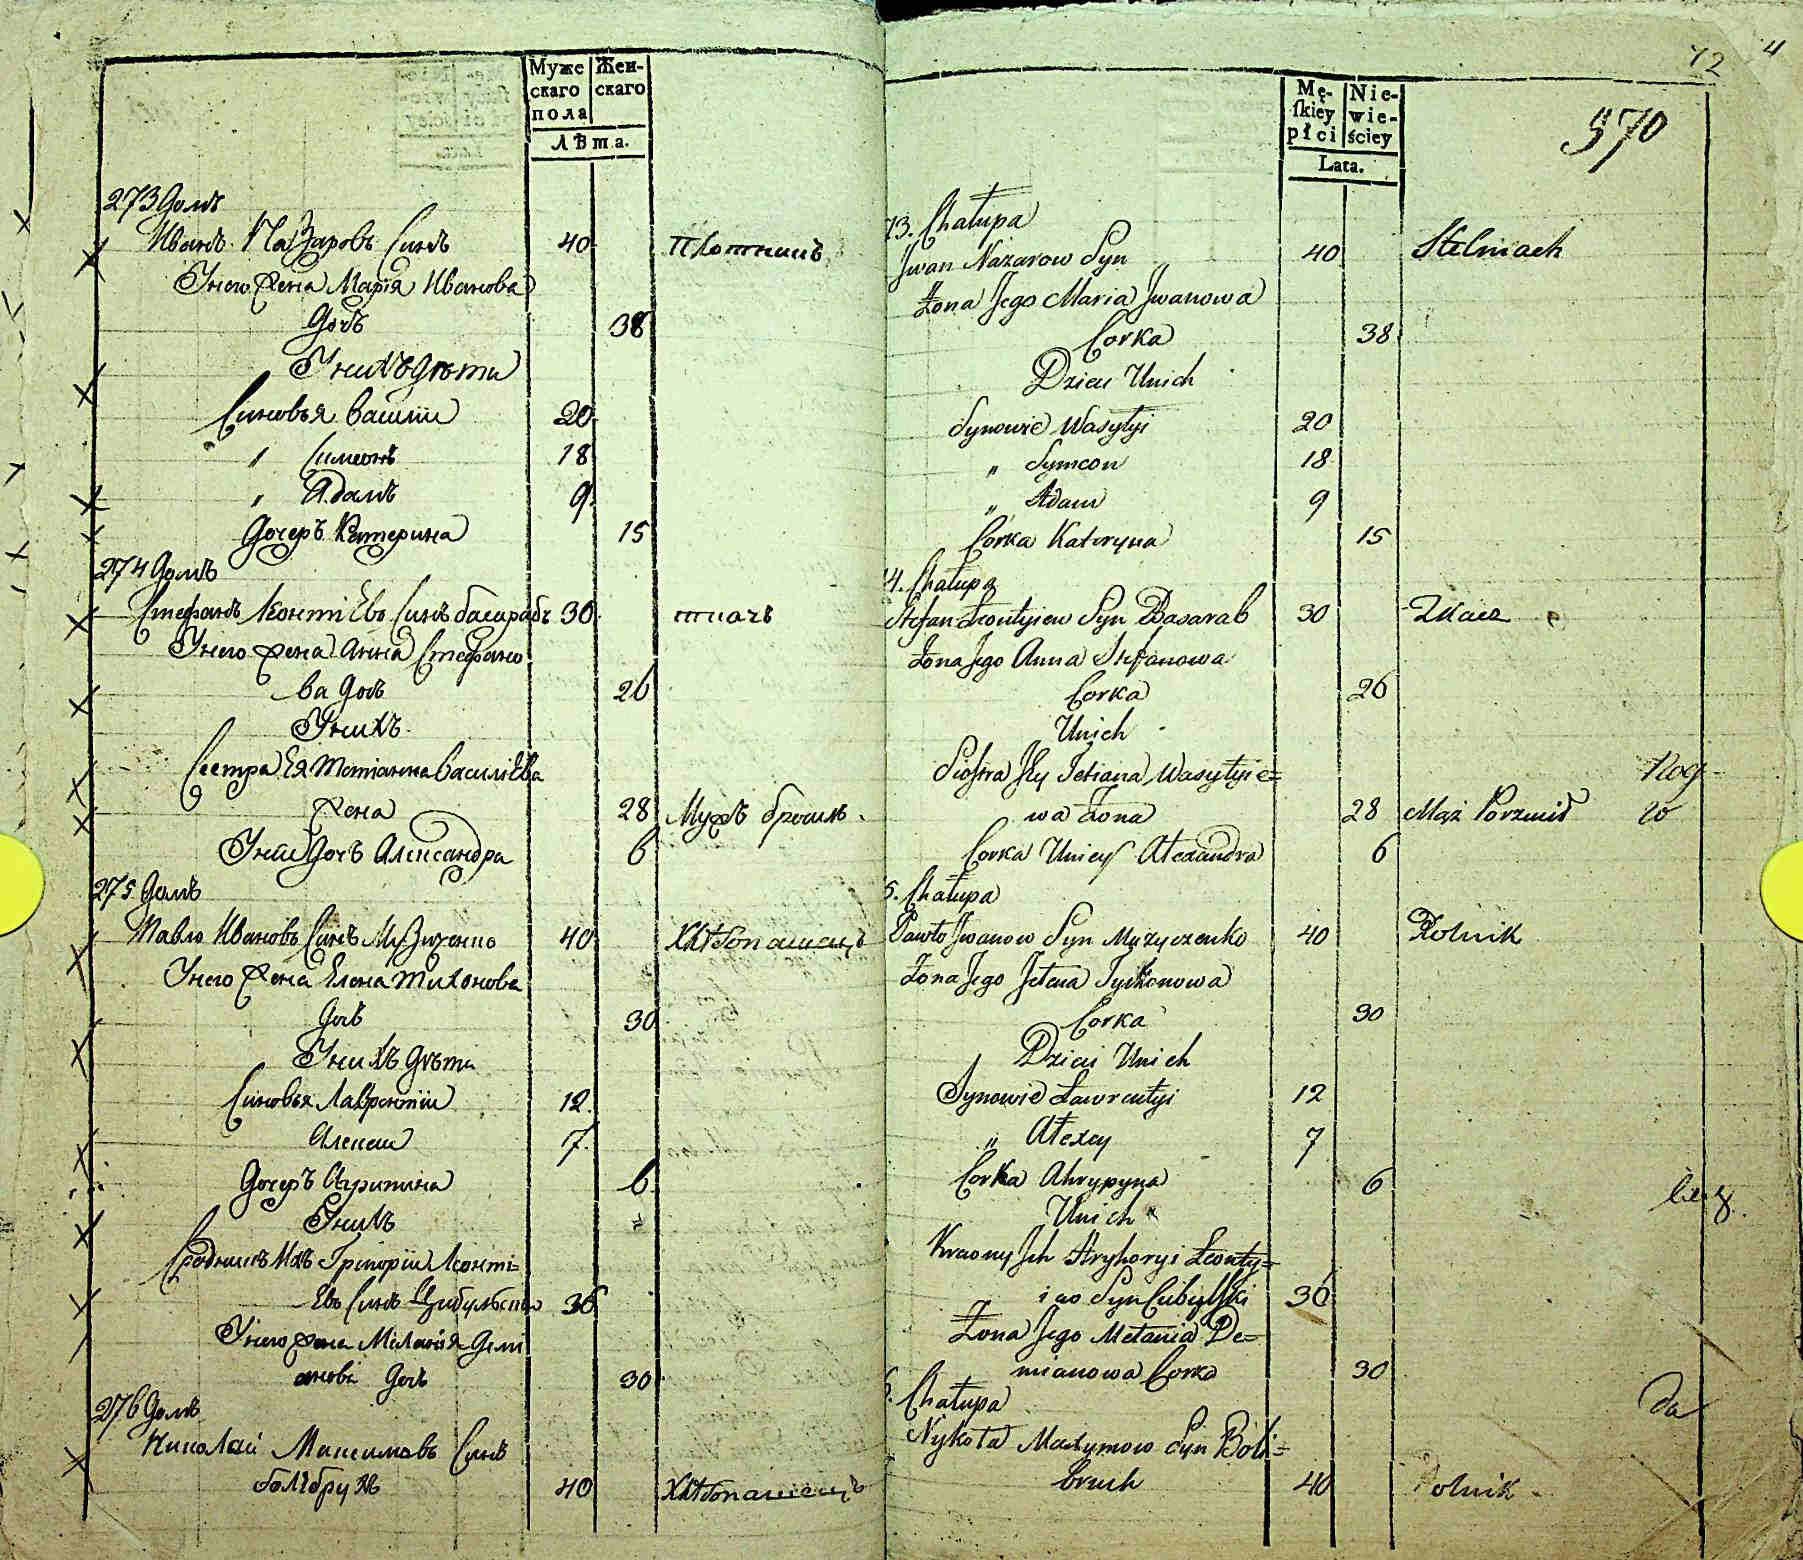 Муже
скаго
пола
Жен-
скаго
Лѣта.
273 Домъ
Иванъ Назаровъ Синъ 40 плотникъ
Унего жена Марія Иванова
Дочъ 38
Унихъ дѣти
Синовья Василій 20
" Симеонъ 18
" Адамъ 9
Дочеръ Катерина 15
274 Домъ
Стефанъ Леонтіевъ Синъ басарабъ 30 ткачъ
Унего жена Анна Стефано
ва Дочъ 26
Унихъ
Сестра Ея Тетіанна Василіева
жена 28 Мужъ бросилъ
Уней Дочъ Александра 6
275 Домъ
Павло Ивановъ Синъ Музиченко 40 Хлѣбопашецъ
Унего жена Елена Тихонова
Дочъ 30
Унихъ дѣти
Синовья Лаврентій 12
Алексей 7
Дочеръ Агрипина 6
Унихъ
Сродникъ Ихъ Григорій Леонті=
Евъ Синъ Цибульскій 36
Унего жена Меланія Деми
анова Дочъ 30
276 Домъ
Николай Максимовъ Синъ
болѣбрухъ 40 Хлѣбопашецъ
72 4
Mę-
ſkiey
płci
Nie-
wie-
ściey
Lata.
570
73. Chałupa
Jwan Nazarow Syn 40 Stelmach
Żona Jego Maria Jwanowa
Corka 38
Dzieci Unich
Synowie Wasyłyi 20
" Symeon 18
" Adam 9
Corka Kateryna 15
4. Chałupa
Stefan Leontyiew Syn Basarab 30 Tkacz
Żona Jego Anna Stefanowa
Corka 26
Unich
Siostra Jey Tetiana Wasyłyie=
wa Żona 28 Mąż Porzucił
Corka Uniey Alexandra 6
5. Chałupa
Pawło Jwanow Syn Muzyczenko 40 Rolnik
Żona Jego Jelena Tychonowa
Corka 30
Dzieci Unich
Synowie Ławrentyi 12
" Alexey 7
Corka Ahrypyna 6
Unich
Krewny Jch Hryhoryi Leonty=
iew Syn Cubylſki 36
Żona Jego Melania De=
mianowa Corka 30
6. Chałupa
Nykoła Maxymow Syn Boli=
bruch 40 Rolnik